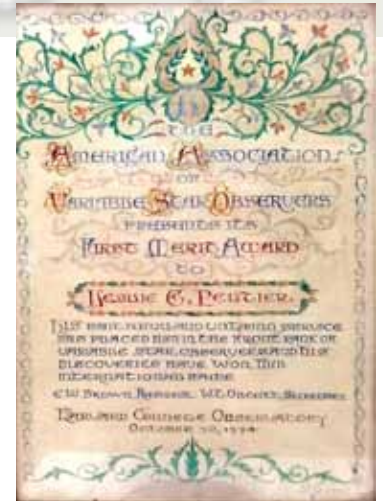 THE
AMERICAN ASSOCIATION
OF
VARIABLE STAR OBSERVERS
PRESENTS ITS
FIRST MERIT AWARD
TO
LESLIE C. PELTIER.
HIS FAITHFUL AND UNTIRING SERVICE
HAS PLACED HIM IN THE FRONT RANK OF
VARIABLE STAR OBSERVERS AND HIS
DISCOVERIES HAVE WON HIM
INTERNATIONAL FAME
E.W. BROWN, W.T. OLCOTT, SECRETARY
HARVARD COLLEGE OBSERVATORY
OCTOBER 20, 1934